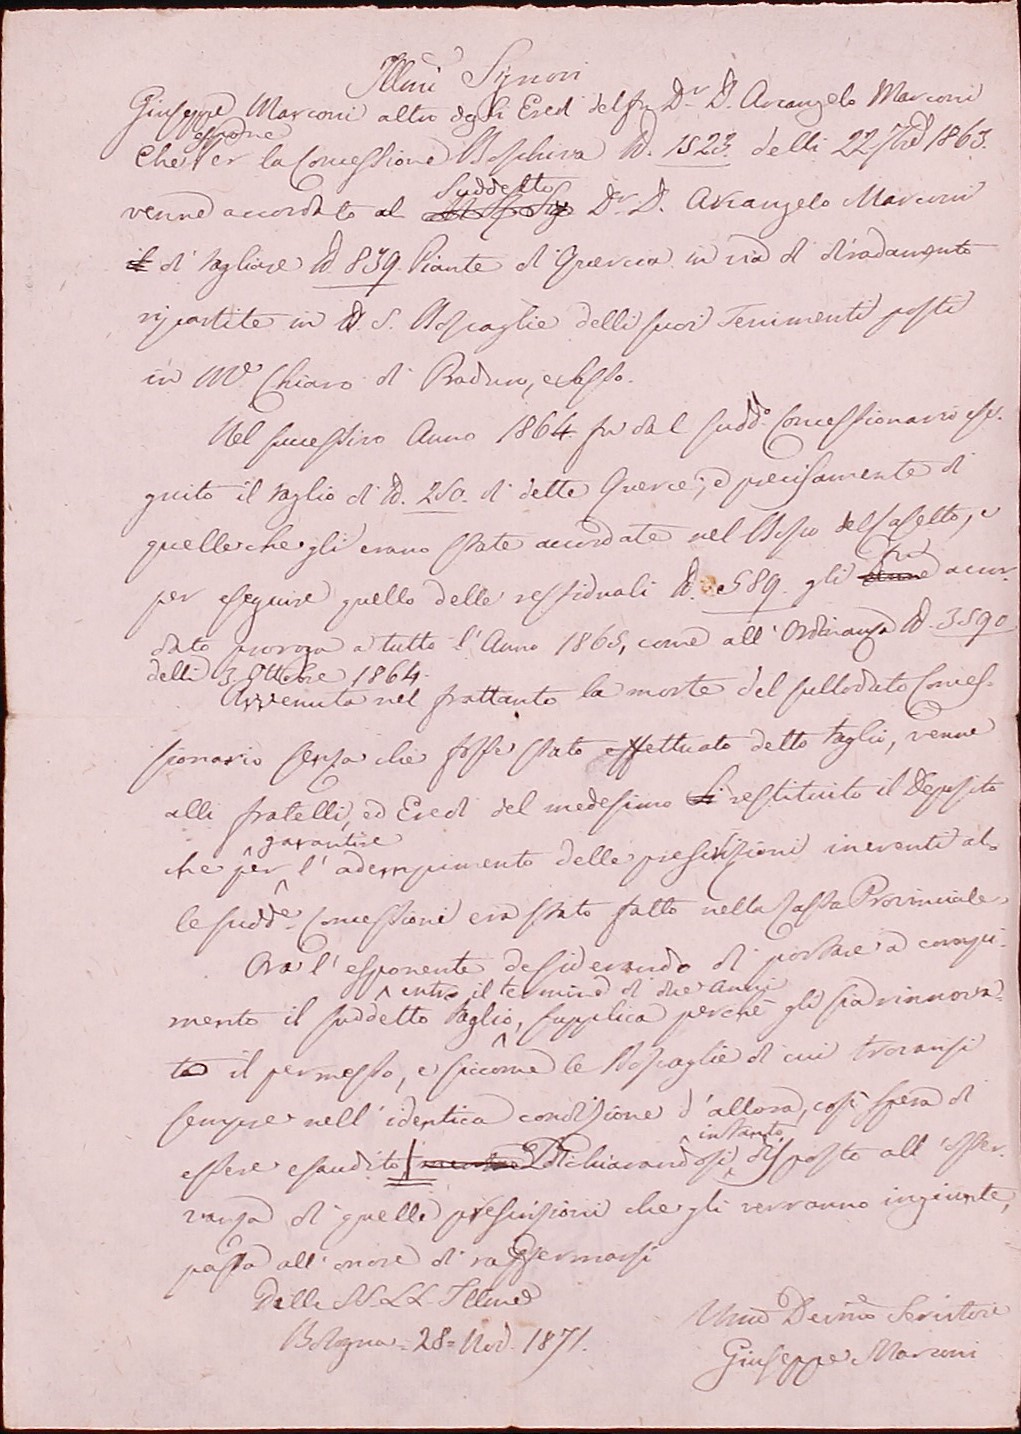 Illmi Signori
Giuseppe Marconi altro degli Eredi del fu Dr. D. Arcangelo Marconi
espone
Che Per la Concessione Boschiva N. 1523. delli 22 7bre 1863.
suddetto
venne accordato al Dr. D. Arcangelo Marconi
il di tagliare N. 839. Piante di Quercia in via di diradamento
ripartite in N. 5. Boscaglie delli suoi Tenimenti posti
in Me. Chiaro di Praduro, e Sasso.
Nel successivo Anno 1864. fu dal sudd.o Concessionario ese-
guito il taglio di N. 250. di dette Querce, e precisamente di
quelle che gli erano state accordate nel Bosco del Casetto, e
fu
per eseguire quello delle residuali N. 589. gli venne accor-
data proroga a tutto l'Anno 1865, come all'Ordinanza N. 3590
delli 3 Ottobre 1864.
Avvenuta nel frattanto la morte del sullodato Conces-
sionario senza che fosse stato effettuato detto taglio, venne
alli fratelli, ed Eredi del medesimo restituito il Deposito
garantire
che per l'adempimento delle prescrizioni inerenti al-
le sudd.e Concessioni era stato fatto nella Cassa Provinciale.
Ora l'esponente desiderando di portare a compi-
entro il termine di due Anni
mento il suddetto taglio, supplica perchè gli sia rinnova-
to il permesso, e siccome le Boscaglie di cui trovansi
sempre nell'identica condizione d'allora, così spera di
intanto
essere esaudito, mentre Dichiarandosi, disposto all'osser-
vanza di quelle prescrizioni che gli verranno ingiunte,
passa all'onore di raffermarsi
Delle SS. LL. Illme
Bologna = 28 = Nov. 1871.
Umo Devmo Servitore
Giuseppe Marconi